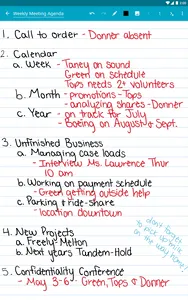 Weekly Meeting Agenda
1. Call to order - Donner absent
2. Calendar
a. Week - Taney on sound
Green on schedule
Tops needs 2+ volunteers
b. Month - promotions - Tops
- analyzing shares - Donner
c. Year - on track for July
- Eyeing on August & Sept.
3. Unfinished Business
a. Managing case loads
- Interview Ms. Lawrence Thur
10 am
b. Working on payment schedule
- Green getting outside help
c. Parking & ride-share
- location downtown
4. New Projects
a. Freely Melton
b. Next years Tandem-Hold
don't forget
to pick up
on the way home!
5. Confidentiality Conference
- May 3-6, Green, Tops & Donner